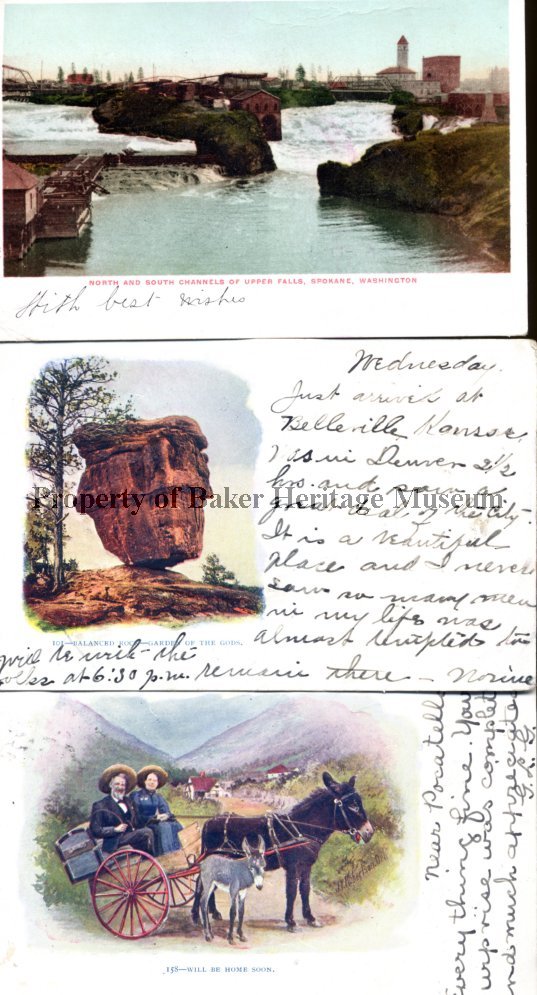 NORTH AND SOUTH CHANNELS OF UPPER FALLS, SPOKANE, WASHINGTON
With best wishes
Wednesday.
Just arrived at
Belleville Kansas.
Was in Denver 2½
hrs. and saw a
great deal of the City.
It is a beautiful
place and I never
saw so many men
in my life was
almost tempted to
remain there - Norine
101—BALANCED ROCK—GARDEN OF THE GODS.
to write the
at 6:30 p.m.
Property of Baker Heritage Museum
158—WILL BE HOME SOON.
Near Pocatello
Everything fine. Your
surprise was complete
and much appreciated